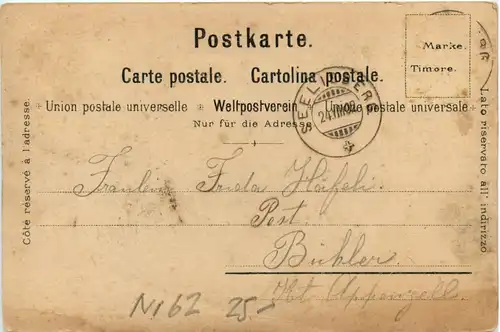 Postkarte.
Carte postale. Cartolina postale.
Union postale universelle + Weltpostverein + Unione postale universale
Nur für die Adresse
Marke.
Timbre.
SEELISBERG
24.VII.02
Côte réservé à l'adresse.
Lato riservato all' indirizzo
Fräulein Frida Häfeli.
Post
Bühler.
Kt. Appenzell.
N162 25.-